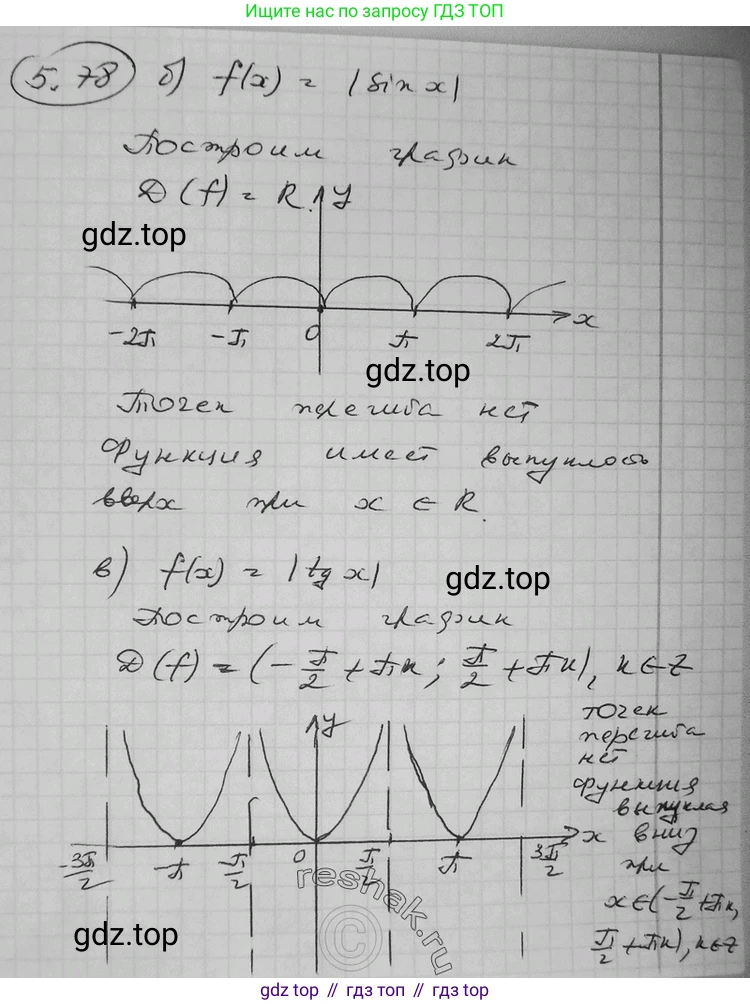 Ищите нас по запросу ГДЗ ТОП
5.78 б) f(x) = |sin x|
Построим график
D(f) = R. y
gdz.top
-2π -π 0 π 2π x
gdz.top
Точек перегиба нет
Функция имеет выпуклость
вверх при x ∈ R.
в) f(x) = |tg x|
gdz.top
Построим график
D(f) = (-π/2 + πk; π/2 + πk), k ∈ Z
y
-3π/2 -π -π/2 0 π/2 π 3π/2 x
точек
перегиба
нет
функция
выпуклая
вниз
при
x ∈ (-π/2 + πk,
π/2 + πk), k ∈ Z
reshak.ru
©
gdz.top
gdz.top // гдз.топ // gdz.top